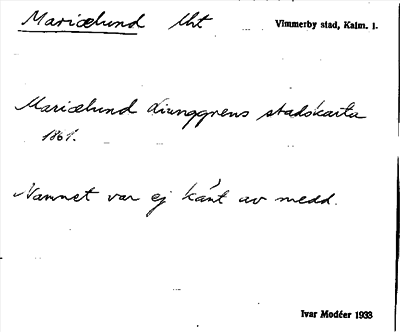 Mariælund Lht
Vimmerby stad, Kalm. l.
Mariælund Liunggrens stadskarta
186?.
Namnet var ej känt av medd.
Ivar Modéer 1933